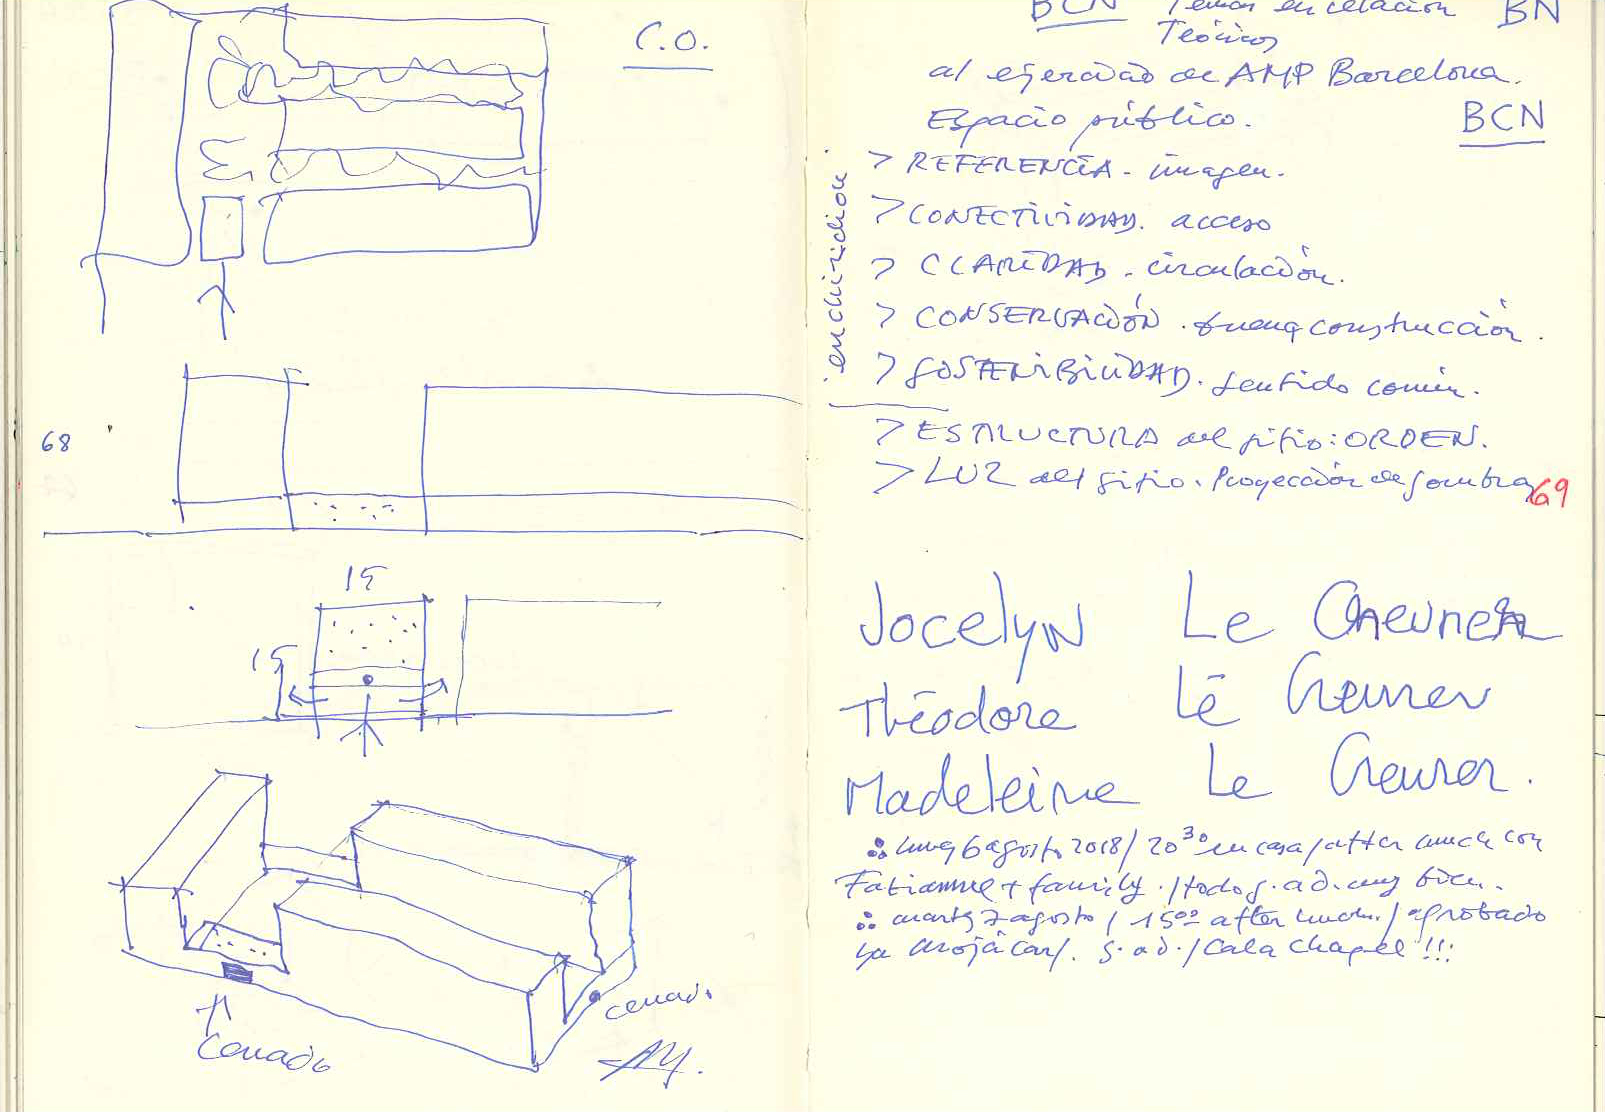 C.O.
68
15
15
cerrado
Cerrado
BCN Temas en relación BN
Teóricos
al ejercicio de AMP Barcelona.
Espacio público. BCN
enchiridion
> REFERENCIA - imagen.
> CONECTIVIDAD. acceso
> CLARIDAD - circulación.
> CONSERVACIÓN. buena construcción.
> SOSTENIBILIDAD. sentido común.
> ESTRUCTURA del sitio: ORDEN.
> LUZ del sitio. Proyección de sombra
69
Jocelyn Le
Théodore Le
Madeleine Le
lunes 6 agosto 2018 / 20 30 en casa / after lunch con
+ family. / todo s. a d. muy bien.
martes 7 agosto / 15 00 after lunch. / aprobado
ya Mojácar /. s. a d. / Cala Chapel !!!